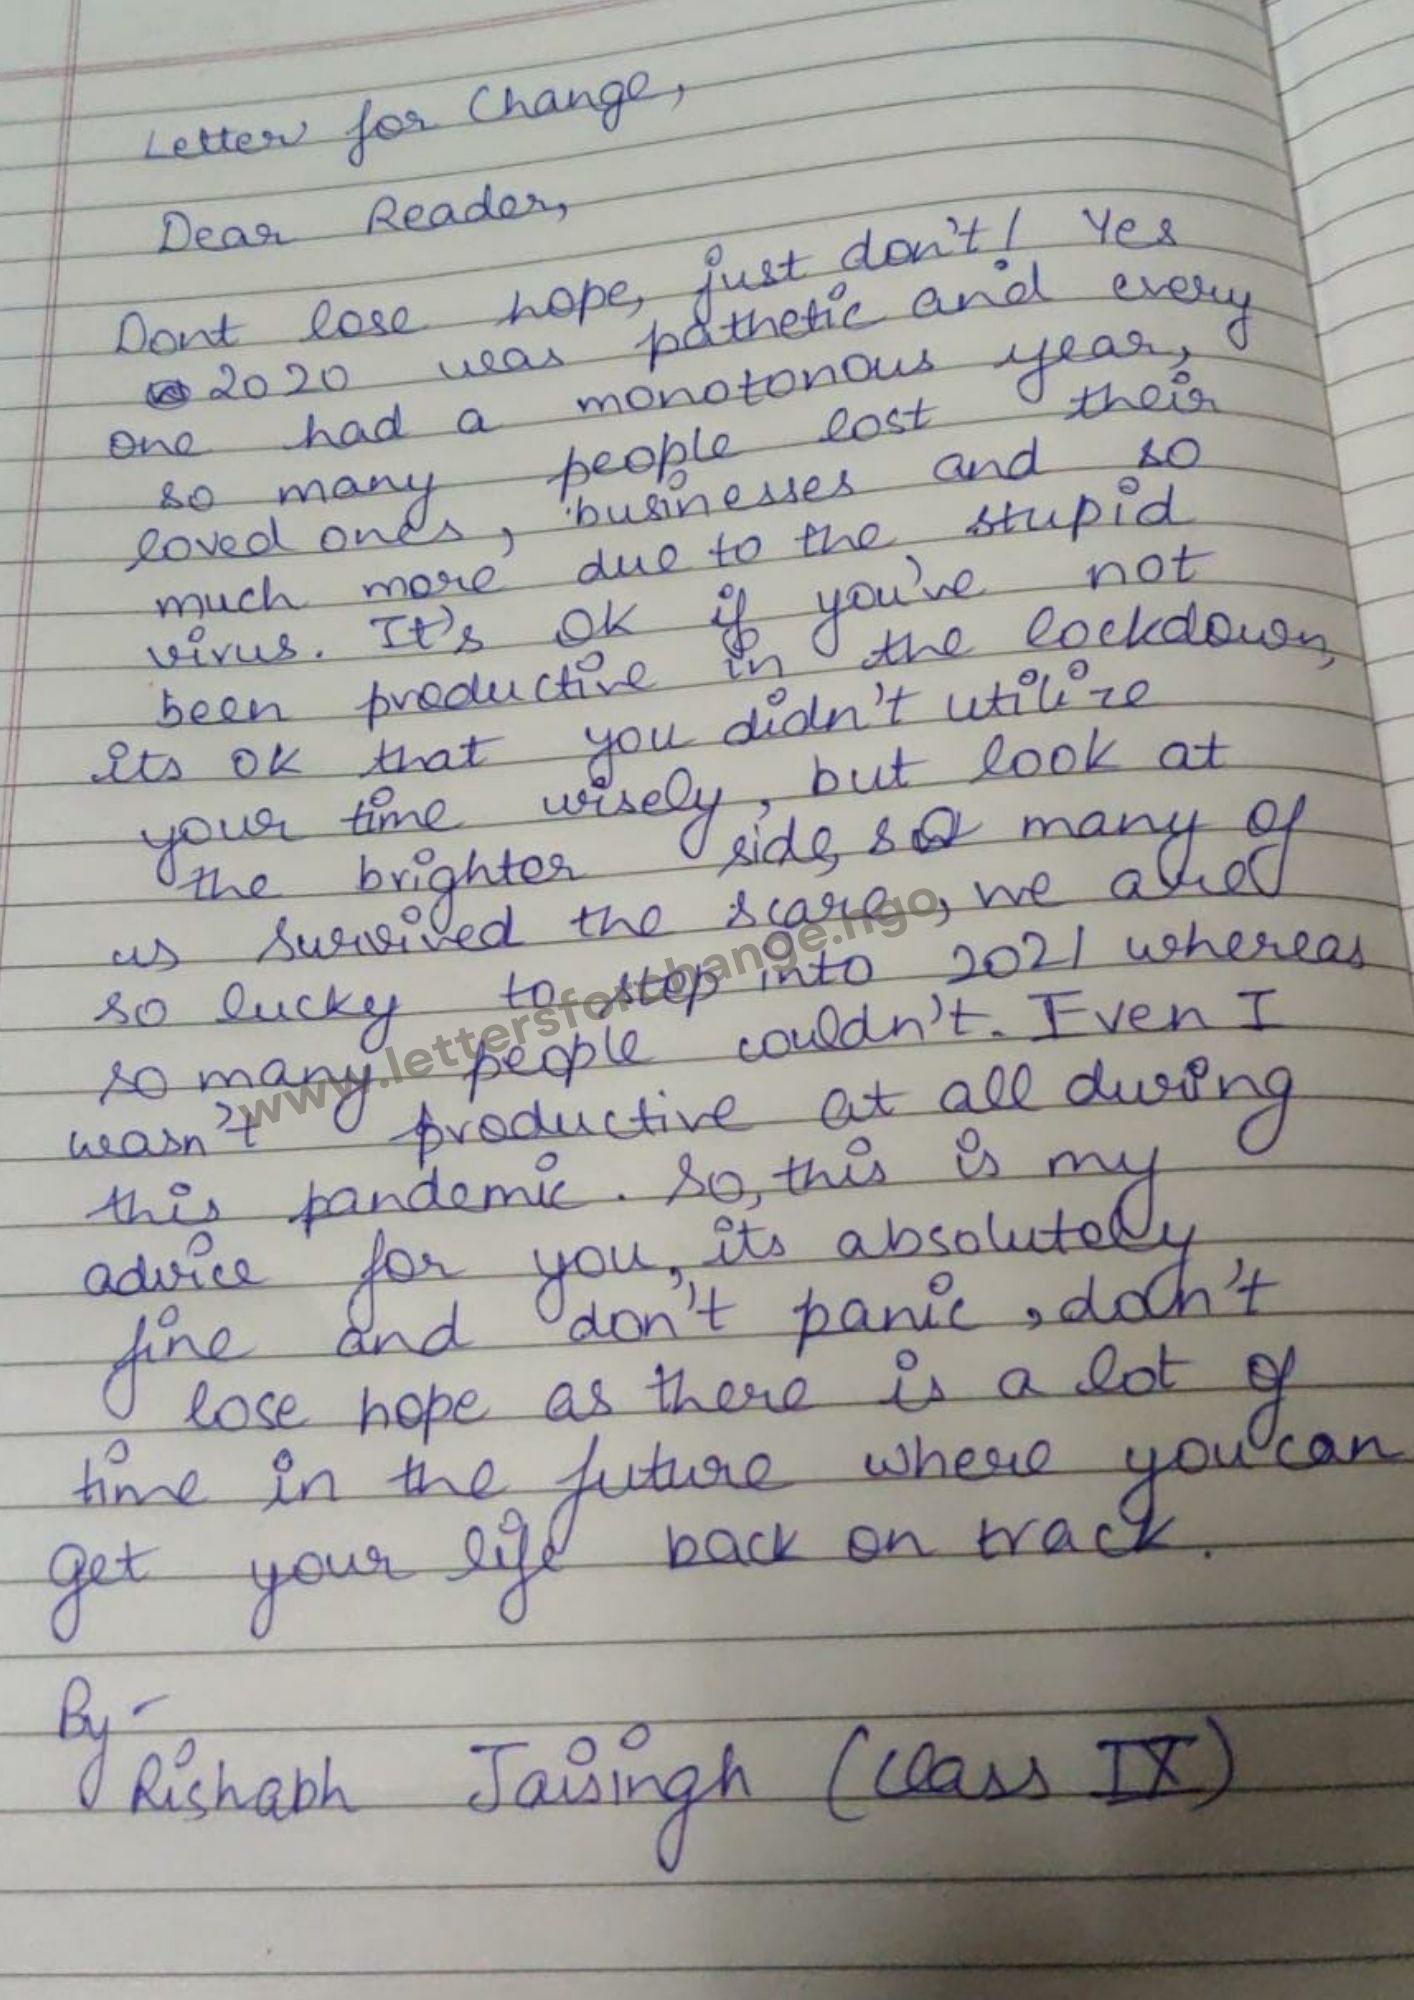 Letter for Change,
Dear Reader,
Dont lose hope, just don't! Yes
2020 was pathetic and every
one had a monotonous year,
so many people lost their
loved ones, businesses and so
much more due to the stupid
virus. It's OK if you've not
been productive in the lockdown,
its OK that you didn't utilize
your time wisely, but look at
the brighter side, so many of
us survived the scare, we are
so lucky to step into 2021 whereas
so many people couldn't. Even I
wasn't productive at all during
this pandemic. So, this is my
advice for you, its absolutely
fine and don't panic, don't
lose hope as there is a lot of
time in the future where you can
get your life back on track.
By-
Rishabh Jaisingh (Class IX)
www.lettersforchange.ngo